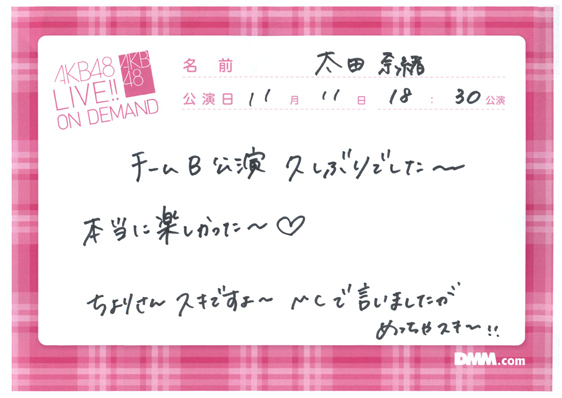 AKB48
LIVE!!
ON DEMAND
AKB
48
名前 太田奈緒
公演日 11月11日 18:30公演
チームB公演 久しぶりでした〜
本当に楽しかった〜♡
ちよりさん スキですよ〜 MCで言いましたが
めっちゃスキ〜!!
DMM.com